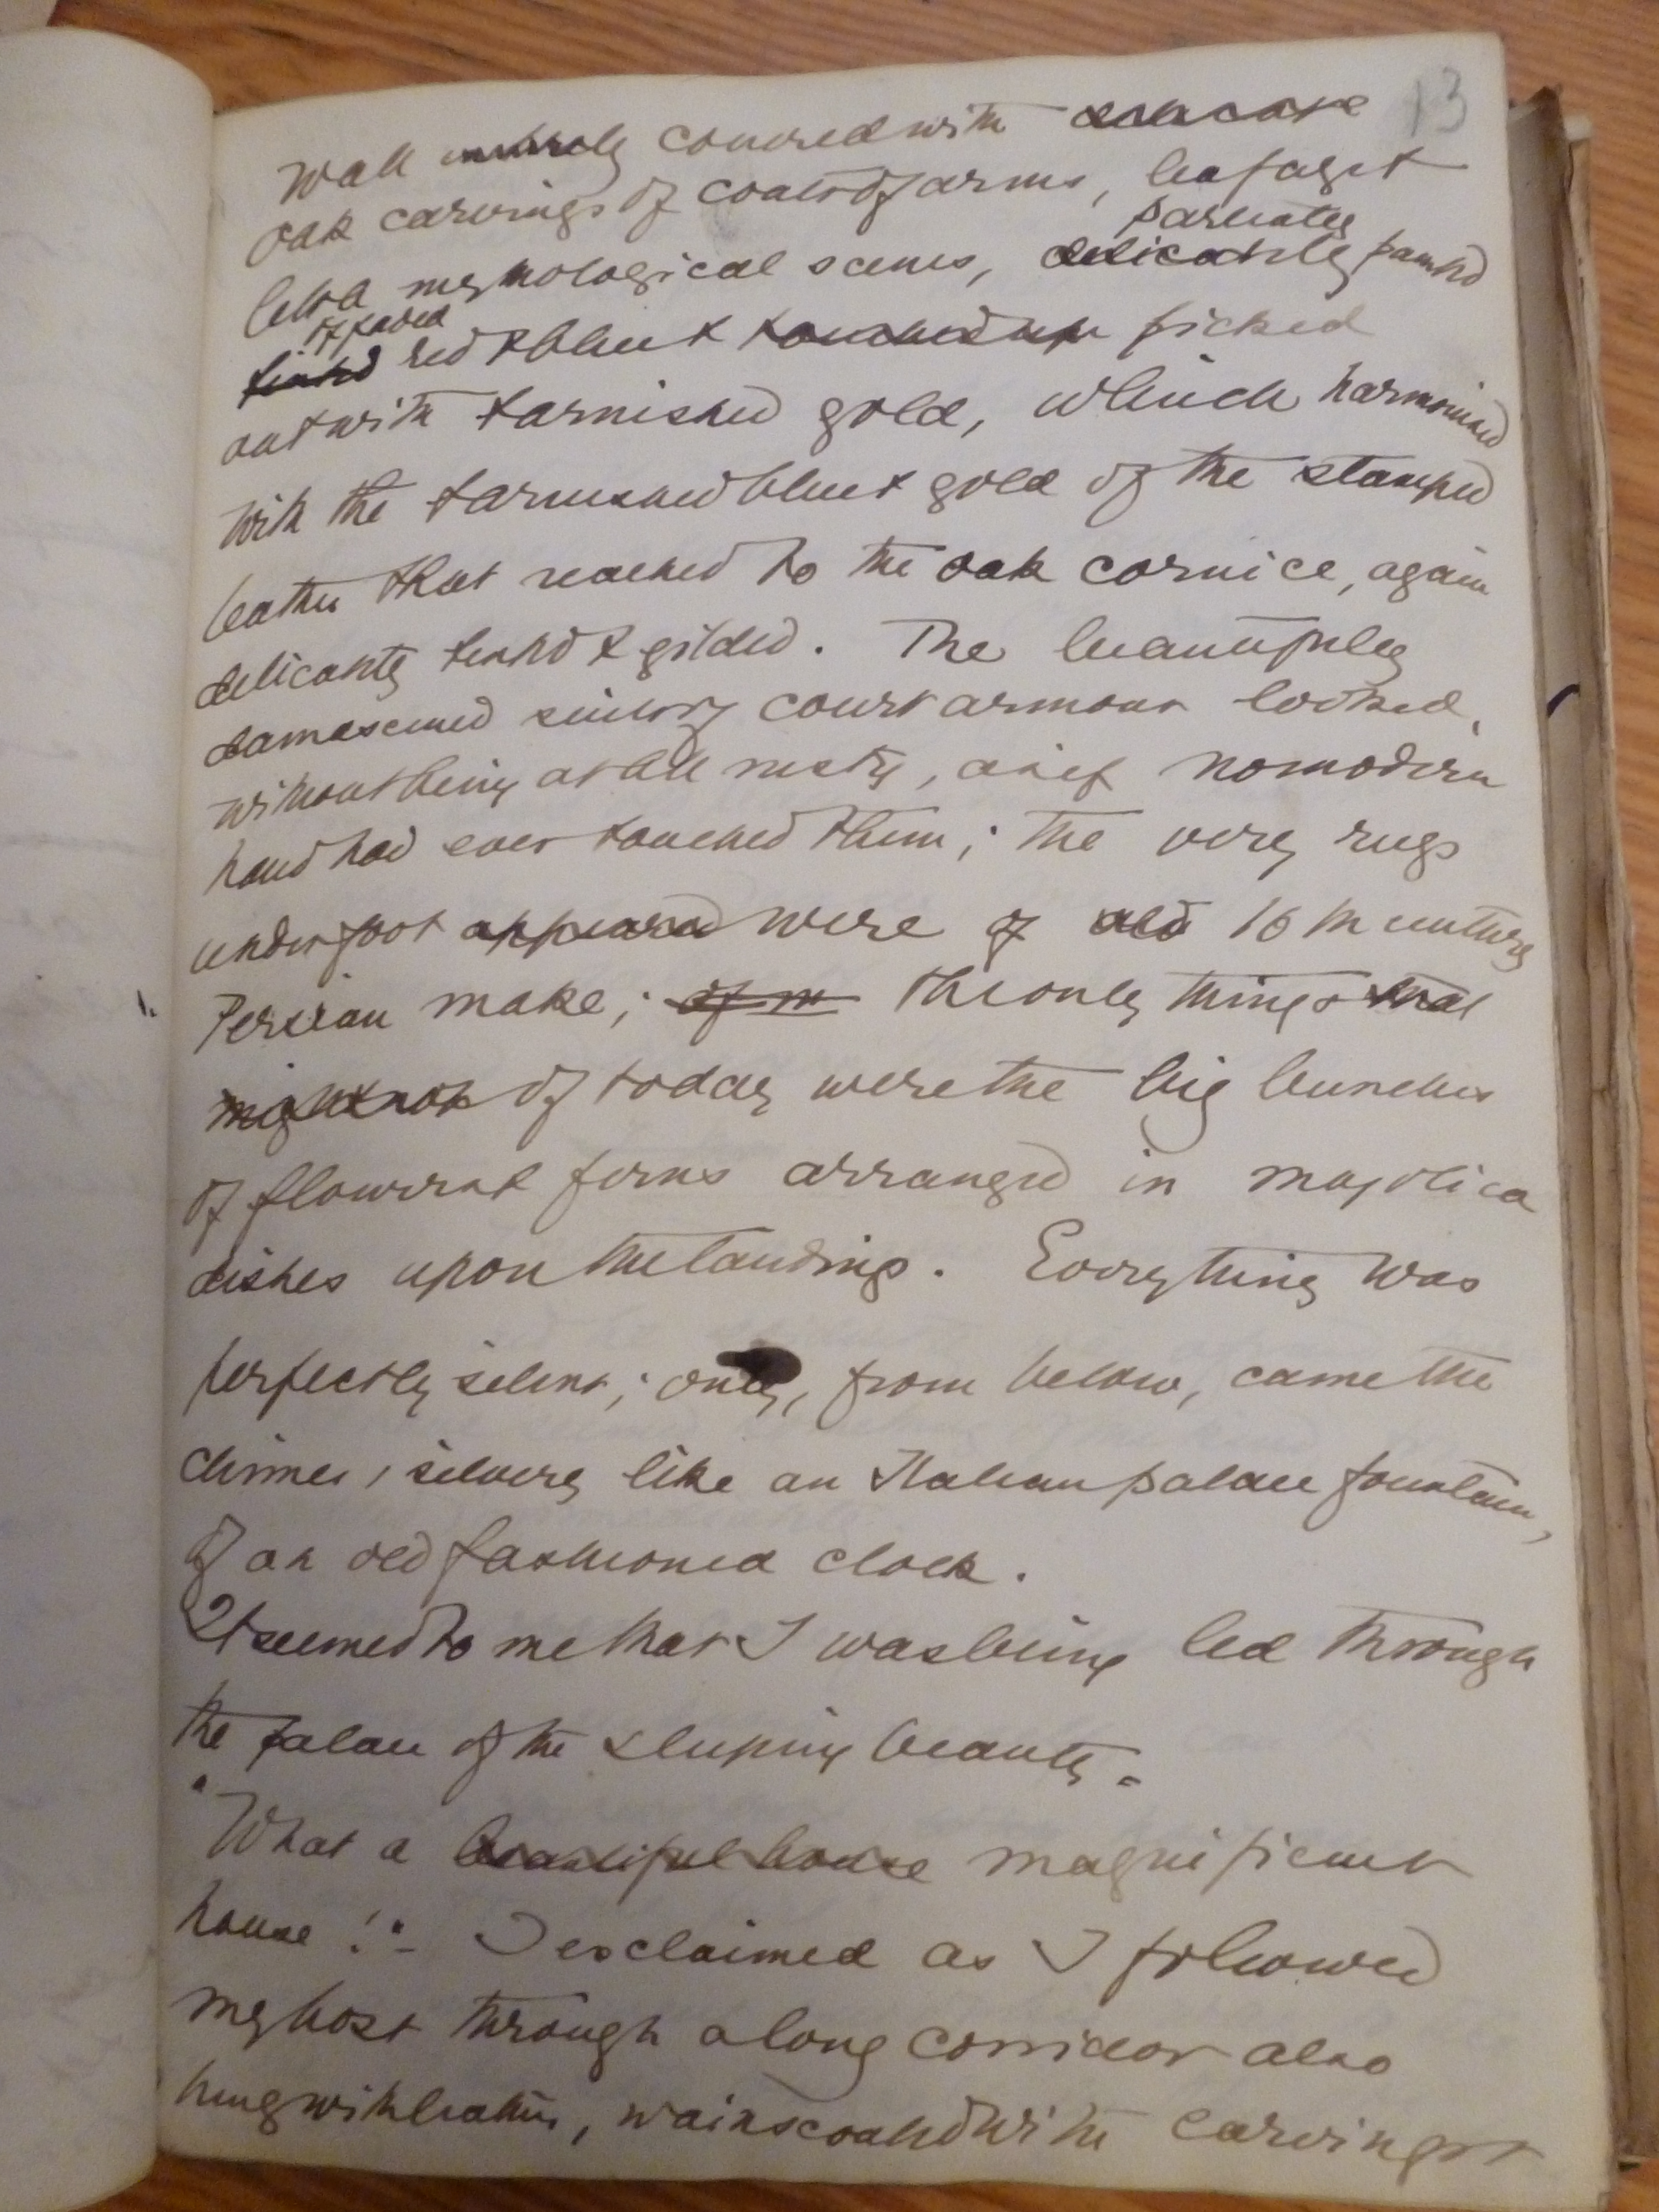 13
wall entirely covered with delicate
oak carvings of coats of arms, leafage &
little mythological scenes, delicately partially painted
tinted of faded red & blue & touched up picked
out with tarnished gold, which harmonized
with the tarnished blue & gold of the stamped
leather that reached to the oak cornice, again
delicately tinted & gilded. The beautifully
damascened suits of court armour looked,
without being at all rusty, as if no modern
hand had ever touched them; the very rugs
under foot appeared were of old 16th century
Persian make; of m the only things that
might not of today were the big bunches
of flowers & ferns arranged in majolica
dishes upon the landings. Everything was
perfectly silent; only, from below, came the
chimes, silvery like an Italian palace fountain,
of an old fashioned clock.
It seemed to me that I was being led through
the palace of the sleeping beauty.
"What a beautiful house magnificent
house!" I exclaimed as I followed
my host through a long corridor also
hung with leather, wainscoated with carvings &